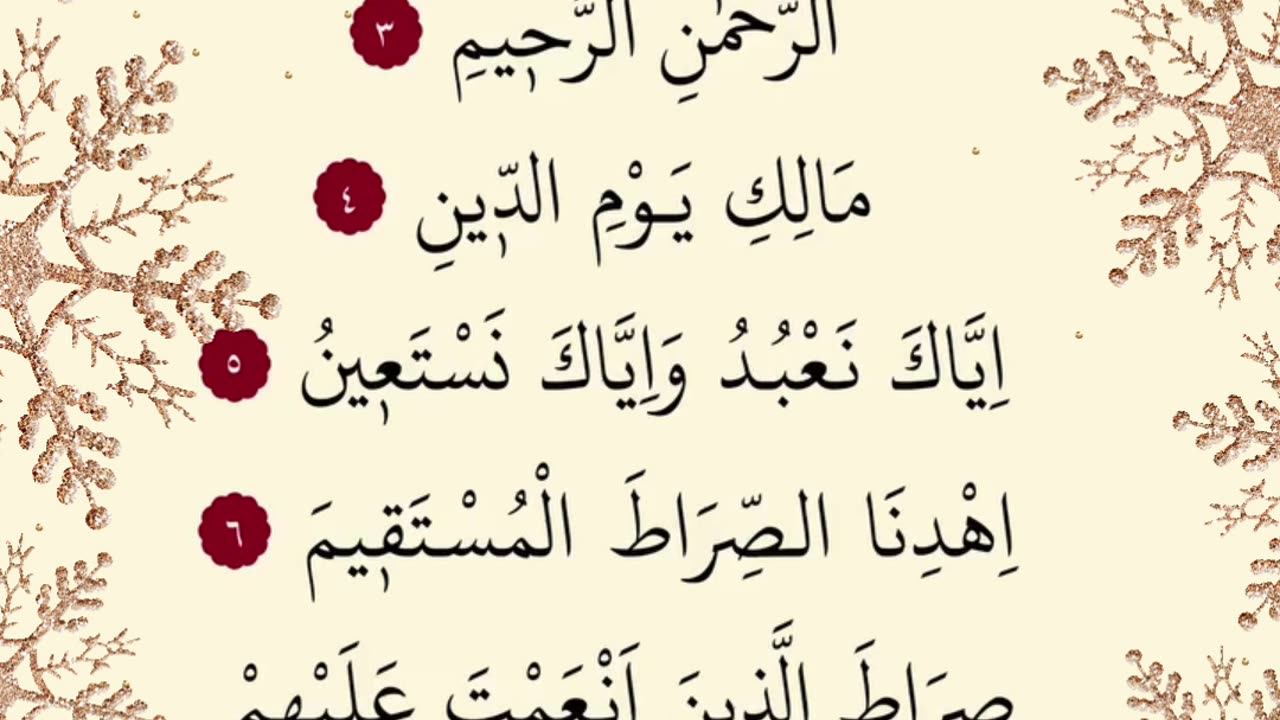 الرَّحْمٰنِ الرَّح۪يمِ ٣
مَالِكِ يَوْمِ الدّ۪ينِ ٤
اِيَّاكَ نَعْبُدُ وَاِيَّاكَ نَسْتَع۪ينُ ٥
اِهْدِنَا الصِّرَاطَ الْمُسْتَق۪يمَ ٦
صِرَاطَ الَّذ۪ينَ اَنْعَمْتَ عَلَيْهِمْ